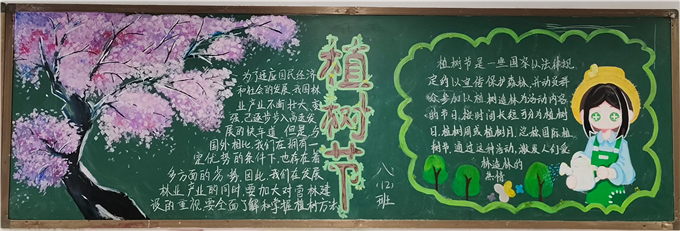 为了适应国民经济
和社会的发展,我国林
业产业不断壮大变
强,已逐步步入高速发
展的快车道,但是,与
国外相比,我们在拥有一
定优势的条件下,也存在着
多方面的劣势,因此,我们在发展
林业产业的同时要加大对森林建
设的重视,要全面了解和掌握植树方法
植树节
八(12)班
植树节是一些国家以法律规
定的以宣传保护森林,并动员群
众参加以植树造林为活动内容
的节日,按时间长短可分为植树
日、植树周或植树月,总称国际植
树节,通过这种活动,激发人们爱
林造林的
热情